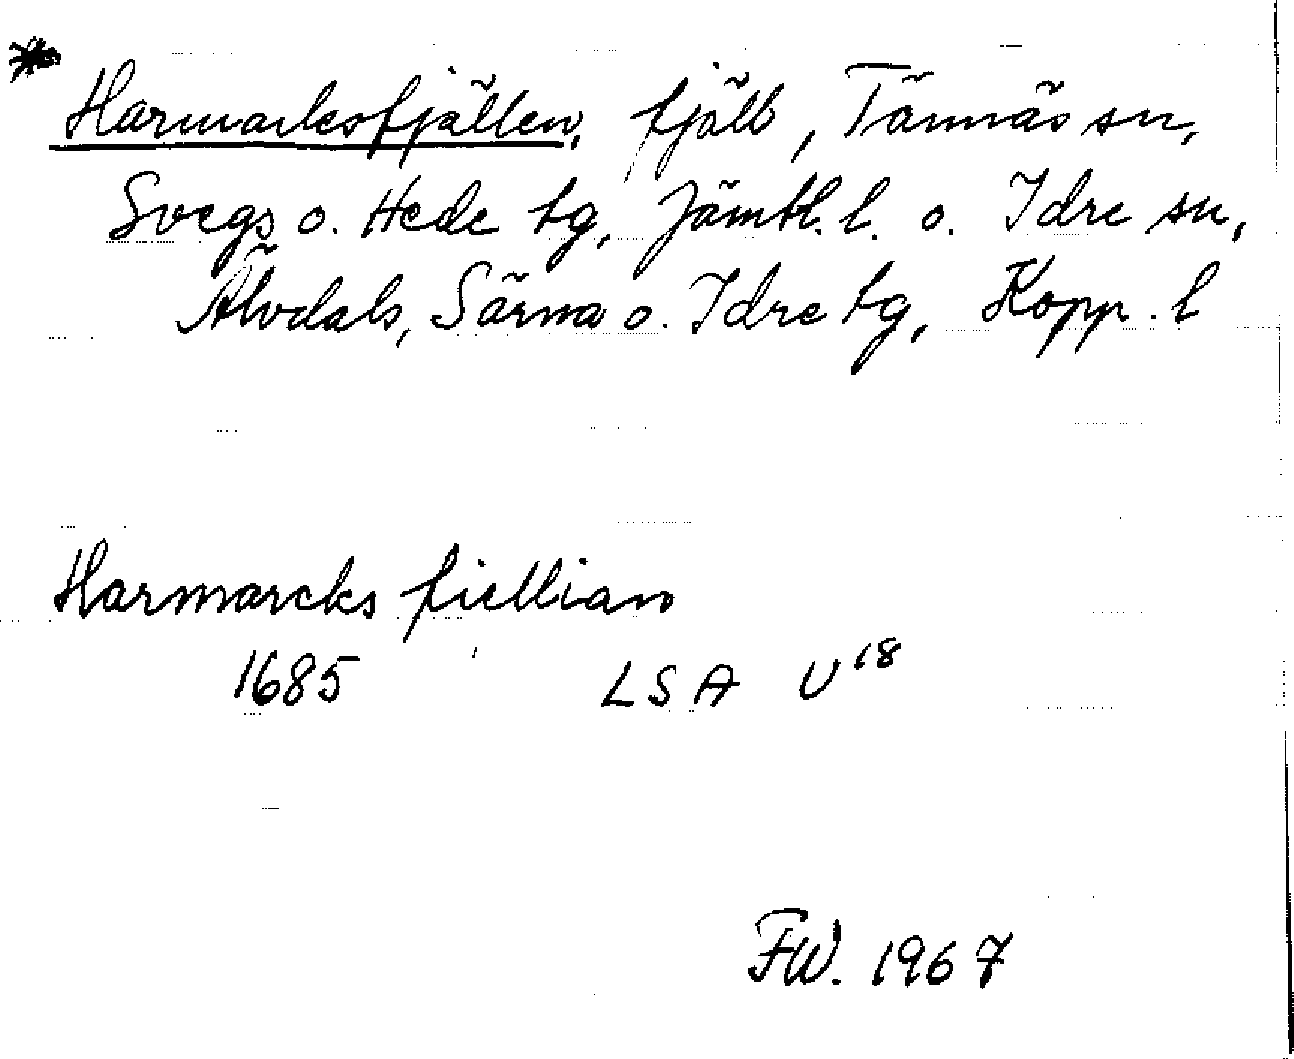 * Harmarksfjällen, fjäll, Tännäs sn,
Svegs o. Hede tg, Jämtl. l. o. Idre sn,
Älvdals, Särna o. Idre tg, Kopp. l
Harmarcks fiellian
1685 LSA U18
FW. 1967